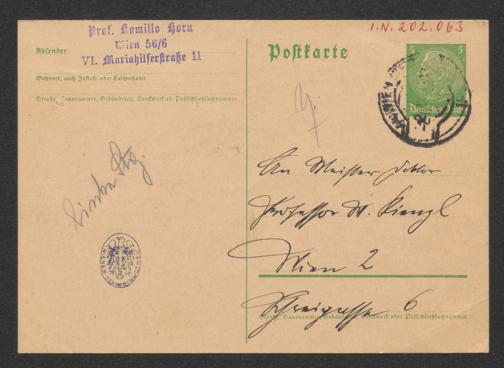 Prof. Kamillo Horn
Wien 56/6
VI. Mariahilferstraße 11
Absender:
Wohnort, auch Zustell- oder Leitpostamt
Straße, Hausnummer, Gebäudeteil, Stockwerk od. Postschließfachnummer
Postkarte
I.N. 202.063
5
5
Deutsches Reich
An Meister Doktor
Professor W. Kienzl
Wien 2
Schreigasse 6
Straße, Hausnummer, Gebäudeteil, Stockwerk oder Postschließfachnummer